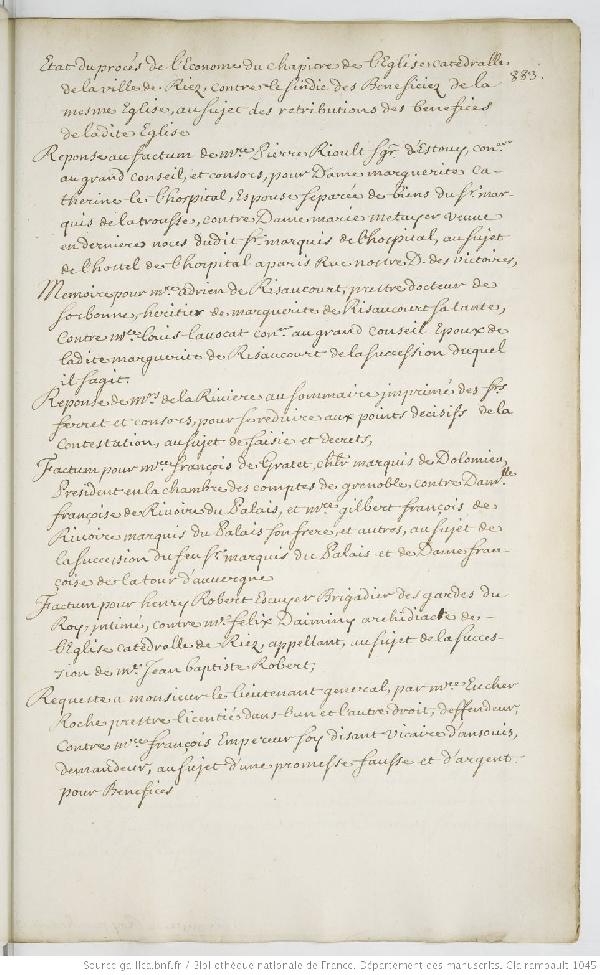 Etat du procés de l'Econome du chapitre de l'Eglise catedralle
de la ville de Riez, contre le sindic des Beneficiez de la
883.
mesme Eglise, au sujet des retributions des benefices
de ladite Eglise
Reponse au factum de mre. Pierre Rioult sgr. d'Estouy, coner.
au grand conseil, et consors, pour Dame marguerite Ca-
therine de l'hospital, Espouse separée de biens du sr. mar-
quis de la trousse, contre Dame marie metayer veuve
en dernieres noces dudit sr. marquis de l'hospital, au sujet
de l'hostel de l'hospital a paris Rue nostre D. des victoires,
Memoire pour mre. adrien de Risaucourt, prestre docteur de
sorbonne, heritier de marguerite de Risaucourt sa tante,
Contre mre. louis lavocat coner. au grand Conseil Epoux de
ladite marguerite de Risaucourt de la succession duquel
il s'agit.
Reponse de mrs. de la Riviere au sommaire imprimé des srs.
ferret et consors, pour se reduire aux points decisifs de la
Contestation, au sujet de saisie et decrets,
Factum pour mre. françois de Gratet, chlr. marquis de Dolomieu,
President en la chambre des comptes de grenoble, contre Damlle.
françoise de Rivoire du Palais, et mre. gilbert françois de
Rivoire marquis du Palais son frere, et autres, au sujet de
la succession du feu sr. marquis du Palais et de Dame fran-
çoise de la tour d'auvergne
Factum pour henry Robert Escuyer Brigadier des gardes du
Roy, intimé, contre mr. felix Dauminy archidiacre de
l'Eglise catedralle de Riez, appellant, au sujet de la succes-
sion de mr. Jean baptiste Robert;
Requeste a monsieur le lieutenant general, par mre. Eucher
Roche prestre licentiés dans l'un et l'autre droit, deffendeur,
Contre mre. françois Empereur soy disant vicaire d'ansouis,
demandeur, au sujet d'une promesse fausse et d'argent
pour Benefices
Source gallica.bnf.fr / Bibliothèque nationale de France. Département des manuscrits. Clairambault 1045